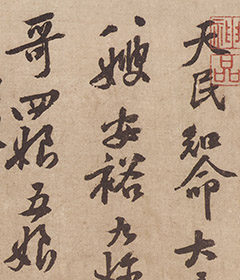 天民知命大
嫂安裕九
哥四娘五娘